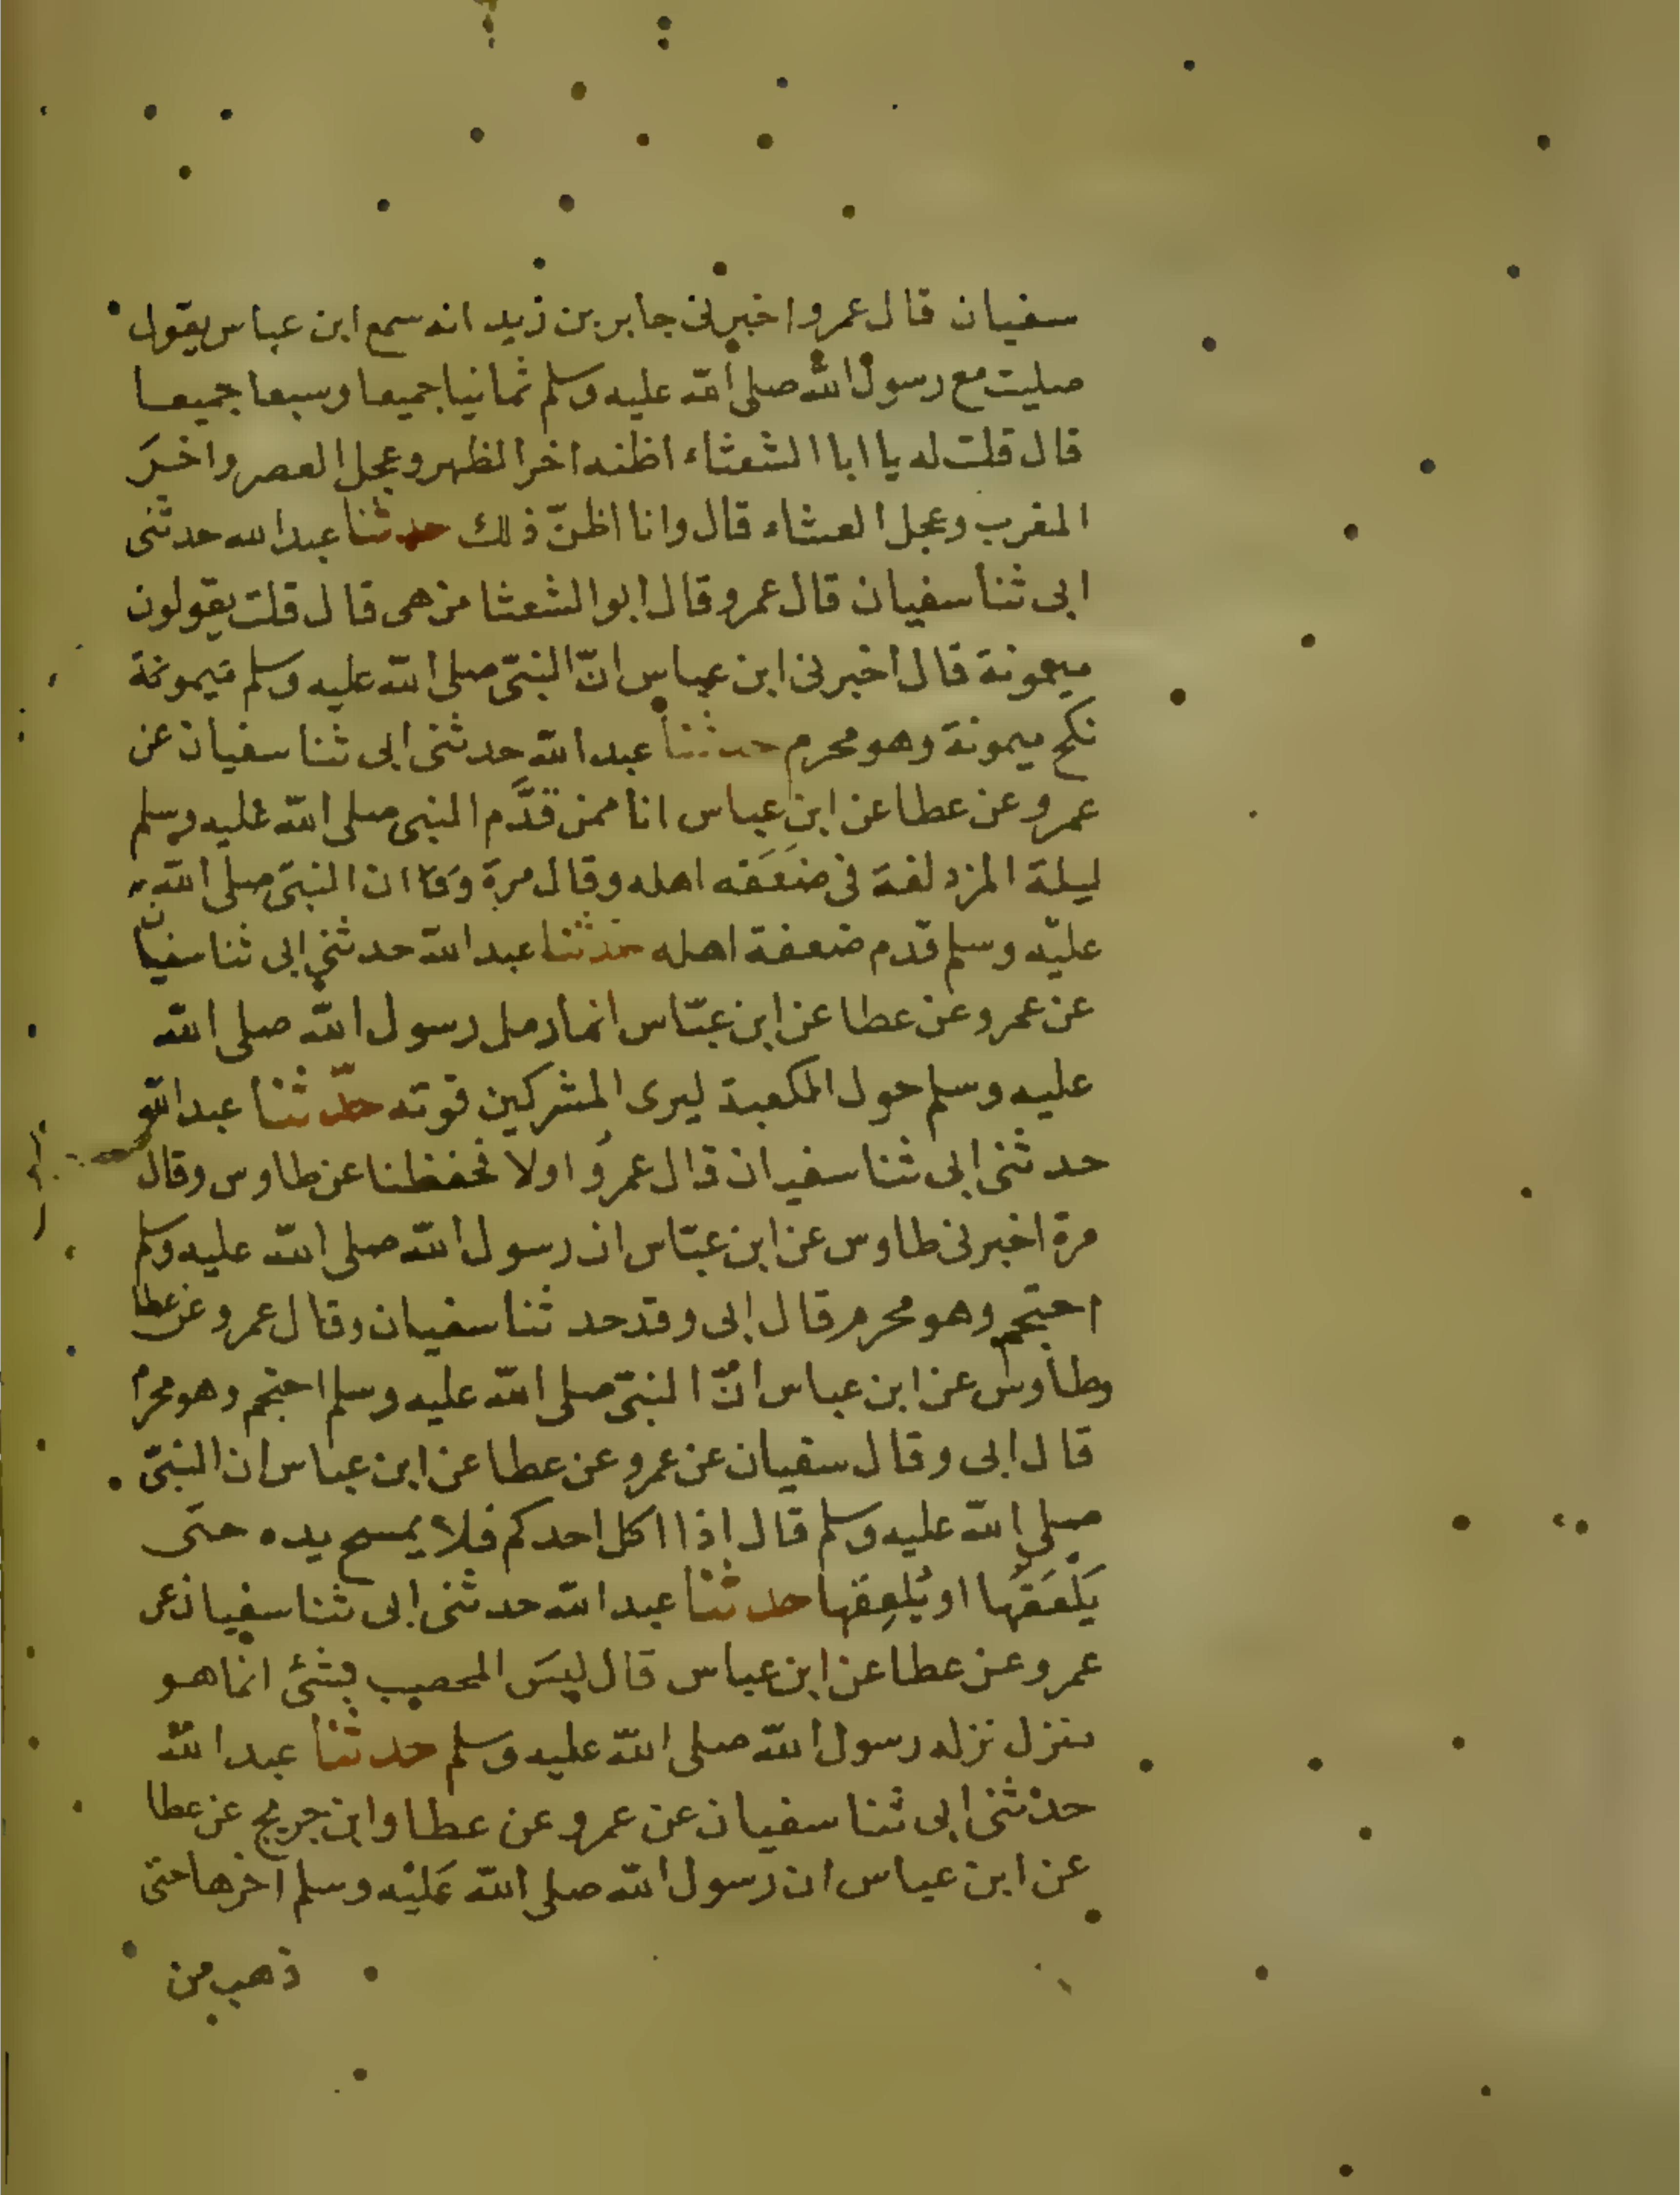 سفيان قال عمرو اخبرنى جابر بن زيد انه سمع ابن عباس يقول
صليت مع رسول الله صلى الله عليه وسلم ثمانيا جميعا وسبعا جميعا
قال قلت له يا ابا الشعثاء اظنه اخر الظهر وعجل العصر واخرَ
المغرب وعجل العشاء قال وانا اظنّ ذلك حدثنا عبد الله حدثنى
ابى ثنا سفيان قال عمرو قال ابو الشعثا من هى قال قلت يقولون
ميمونة قال اخبرنى ابن عباس انّ النبىّ صلى الله عليه وسلم ميمونة
نكح ميمونة وهو محرم حدثنا عبد الله حدثنى ابى ثنا سفيان عن
عمرو عن عطا عن ابن عباس انا ممن قدَّم النبى صلى الله عليه وسلم
ليلة المزدلفة فى ضَعَفه اهله وقال مرة ان النبىّ صلى الله
عليه وسلم قدم ضعفة اهله حدثنا عبد الله حدثنى ابى ثنا سفيان
عن عمرو عن عطا عن ابن عبّاس انما رمل رسول الله صلى الله
عليه وسلم حول الكعبة ليرى المشركين قوته حدّثنا عبد الله
حدثنى ابى ثنا سفيان قال عمرُو اولا فحفظنا عن طاوس وقال
مرة اخبرنى طاوس عن ابن عبّاس ان رسول الله صلى الله عليه وسلم
احتجم وهو محرم قال ابى وقد حدثنا سفيان وقال عمرو عن عطا
وطاوس عن ابن عباس انّ النبىّ صلى الله عليه وسلم احتجم وهو محرم
قال ابى وقال سفيان عن عمرو عن عطا عن ابن عباس ان النبىّ
صلى الله عليه وسلم قال اذا اكل احدكم فلا يمسح يده حتى
يَلْعَقَها او يُلعِقها حدثنا عبد الله حدثنى ابى ثنا سفيان عن
عمرو عن عطا عن ابن عباس قال ليسَ المحصب بشئ انما هو
منزل نزله رسول الله صلى الله عليه وسلم حدثنا عبد الله
حدثنى ابى ثنا سفيان عن عمرو عن عطا وابن جريج عن عطا
عن ابن عباس ان رسول الله صلى الله عَليْه وسلم اخرها حتى
ذهب من